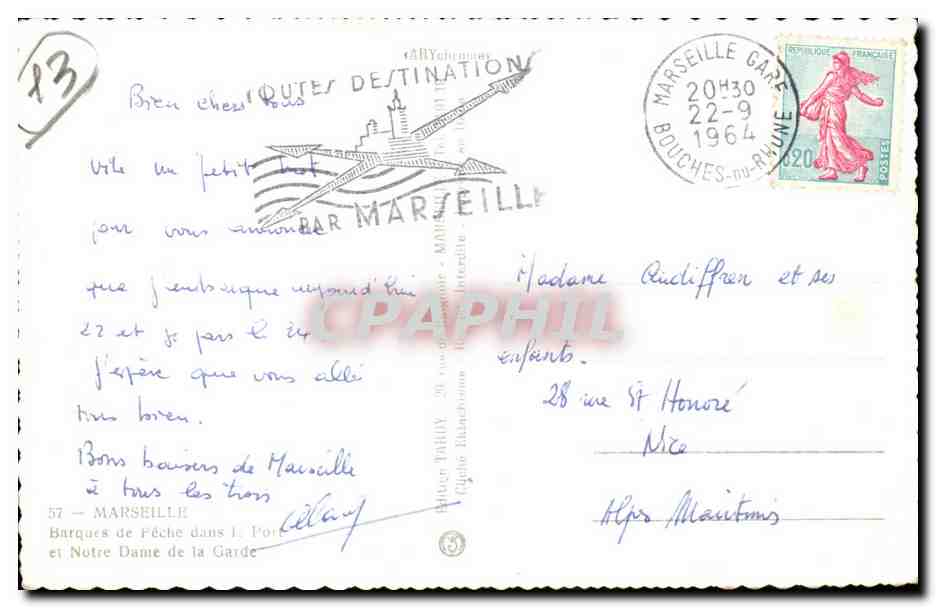 13
Bien chers tous
vite un petit mot
pour vous annoncer
que j'embarque aujourd'hui
22 et je pars le 24
J'espère que vous allé
tous bien.
Bons baisers de Marseille
à tous les trois
57 — MARSEILLE
Barques de Pêche dans l Por
et Notre Dame de la Garde
TOUTES DESTINATIONS
PAR MARSEILLE
MARSEILLE GARE
20H30
22-9
1964
BOUCHES-DU-RHONE
REPUBLIQUE FRANÇAISE
0,20
POSTES
Madame Audiffren et ses
enfants.
28 rue St Honoré
Nice
Alpes Maritimes
Edition TARDY
Interdite
CPAPHIL